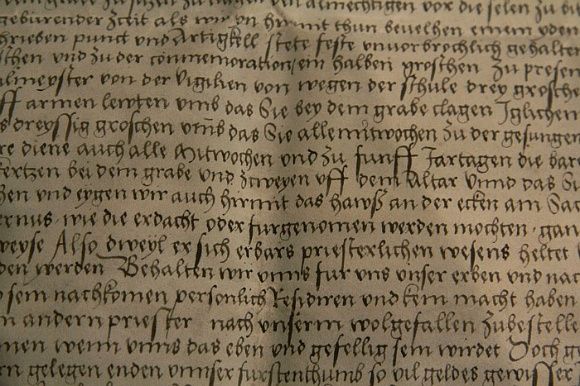 zu n almechtigen vor die selen zu bi
geburender zceit als wir yn hirmit thun bevelhen einem yden
hrieben punct und Artigkell stete feste unvorbrochlich gehalten
schen und zu der commemoration ein halben groschen zu presen
almeyster von der Vigilien von wegen der schule drey grosche
uff armen lewten umb das Sie bey dem grabe clagen Iglichen
s dreyssig groschen umb das Sie alle mitwochen zu der gesungen
re diene auch alle Mitwochen und zu funff Jartagen die bare
kertzen bei dem grabe und zweyen uff dem Altar unnd das Si
hen und eygen wir auch hirmit das hawß an der ecken am Sac
ernus wie die erdacht oder furgenomen werden mochten gan
weyse Also dweyl er sich erbars priesterlichen wesens heltet
den werden Behalten wir unns fur uns unser erben und nac
o sein nachkomen personlich Residiren und kein macht haben
n andern priester nach unserm wolgefallen zubestelle
men wenn unns das eben und gefellig sein wirdet Doch g
rn gelegen enden unnser furstenthumb so vil geldes gewisser